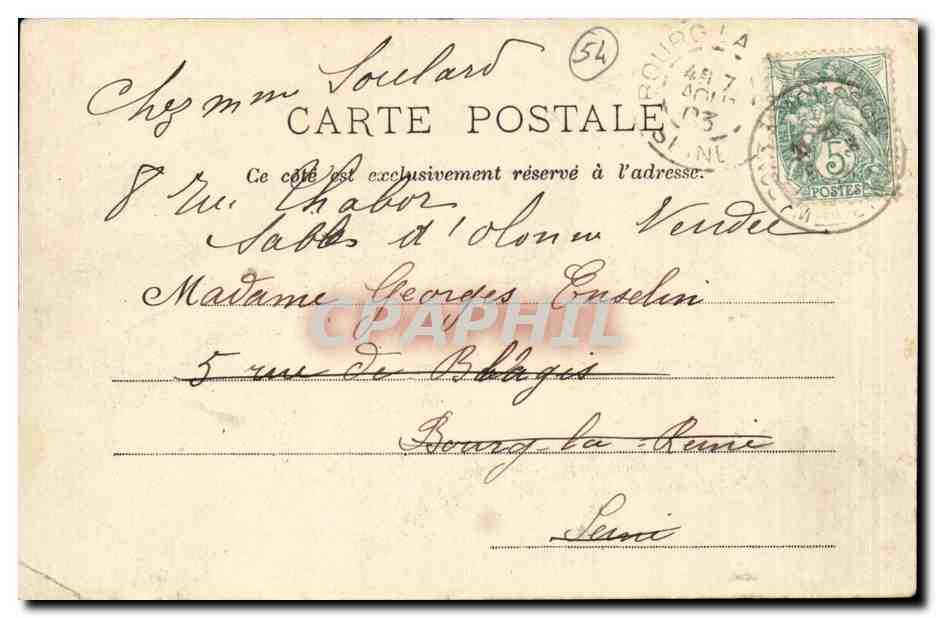 54
BOURG LA
4E 7
AOUT
03
SEINE
5
POSTES
Chez mme Soulard
CARTE POSTALE
Ce côté est exclusivement réservé à l'adresse.
8 rue Chabot
Sables d'Olonne Vendée
Madame Georges Enselin
5 rue de Blagis
Bourg-la-Reine
Seine
CPAPHIL